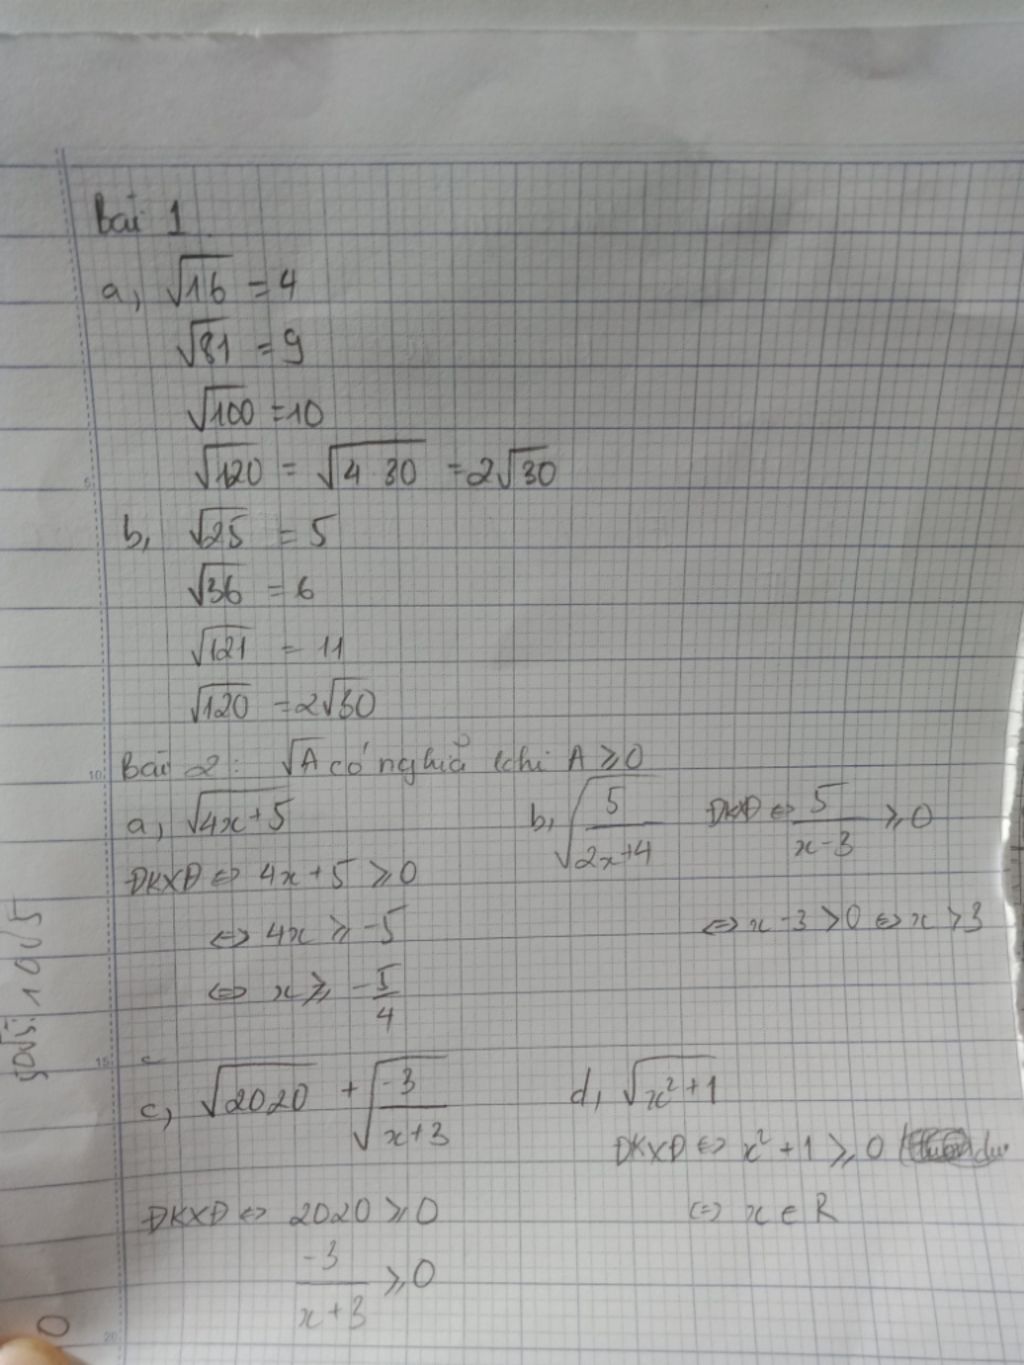 Bài 1.
a, √16 = 4
√81 = 9
√100 = 10
√120 = √4 30 = 2√30
b, √25 = 5
√36 = 6
√121 = 11
√120 = 2√30
Bài 2: √A có nghĩa khi A ⩾ 0
a, √4x+5
ĐKXĐ ⇔ 4x + 5 ⩾ 0
⇔ 4x ⩾ -5
⇔ x ⩾ -5/4
b, √5/2x+4 ĐKXĐ ⇔ 5/x-3 ⩾ 0
⇔ x - 3 > 0 ⇔ x > 3
c, √2020 + √-3/x+3
ĐKXĐ ⇔ 2020 ⩾ 0
-3/x+3 ⩾ 0
d, √x²+1
ĐKXĐ ⇔ x² + 1 ⩾ 0
⇔ x ∈ R
10√5
0